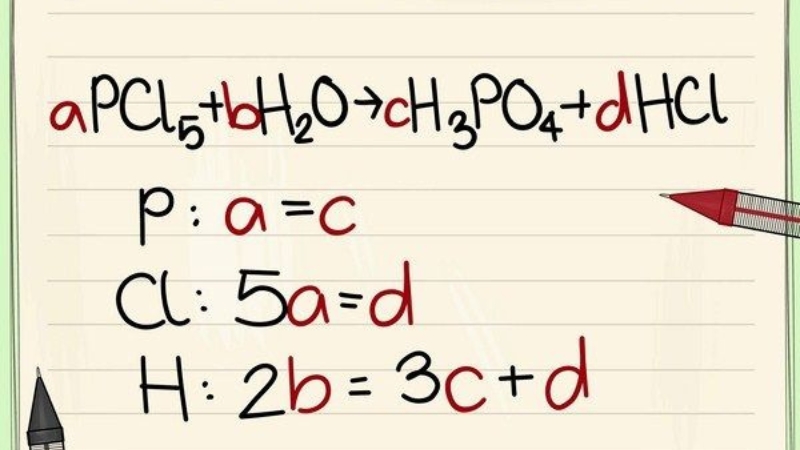 aPCl₅+bH₂O→cH₃PO₄+dHCl
P: a=c
Cl: 5a=d
H: 2b=3c+d